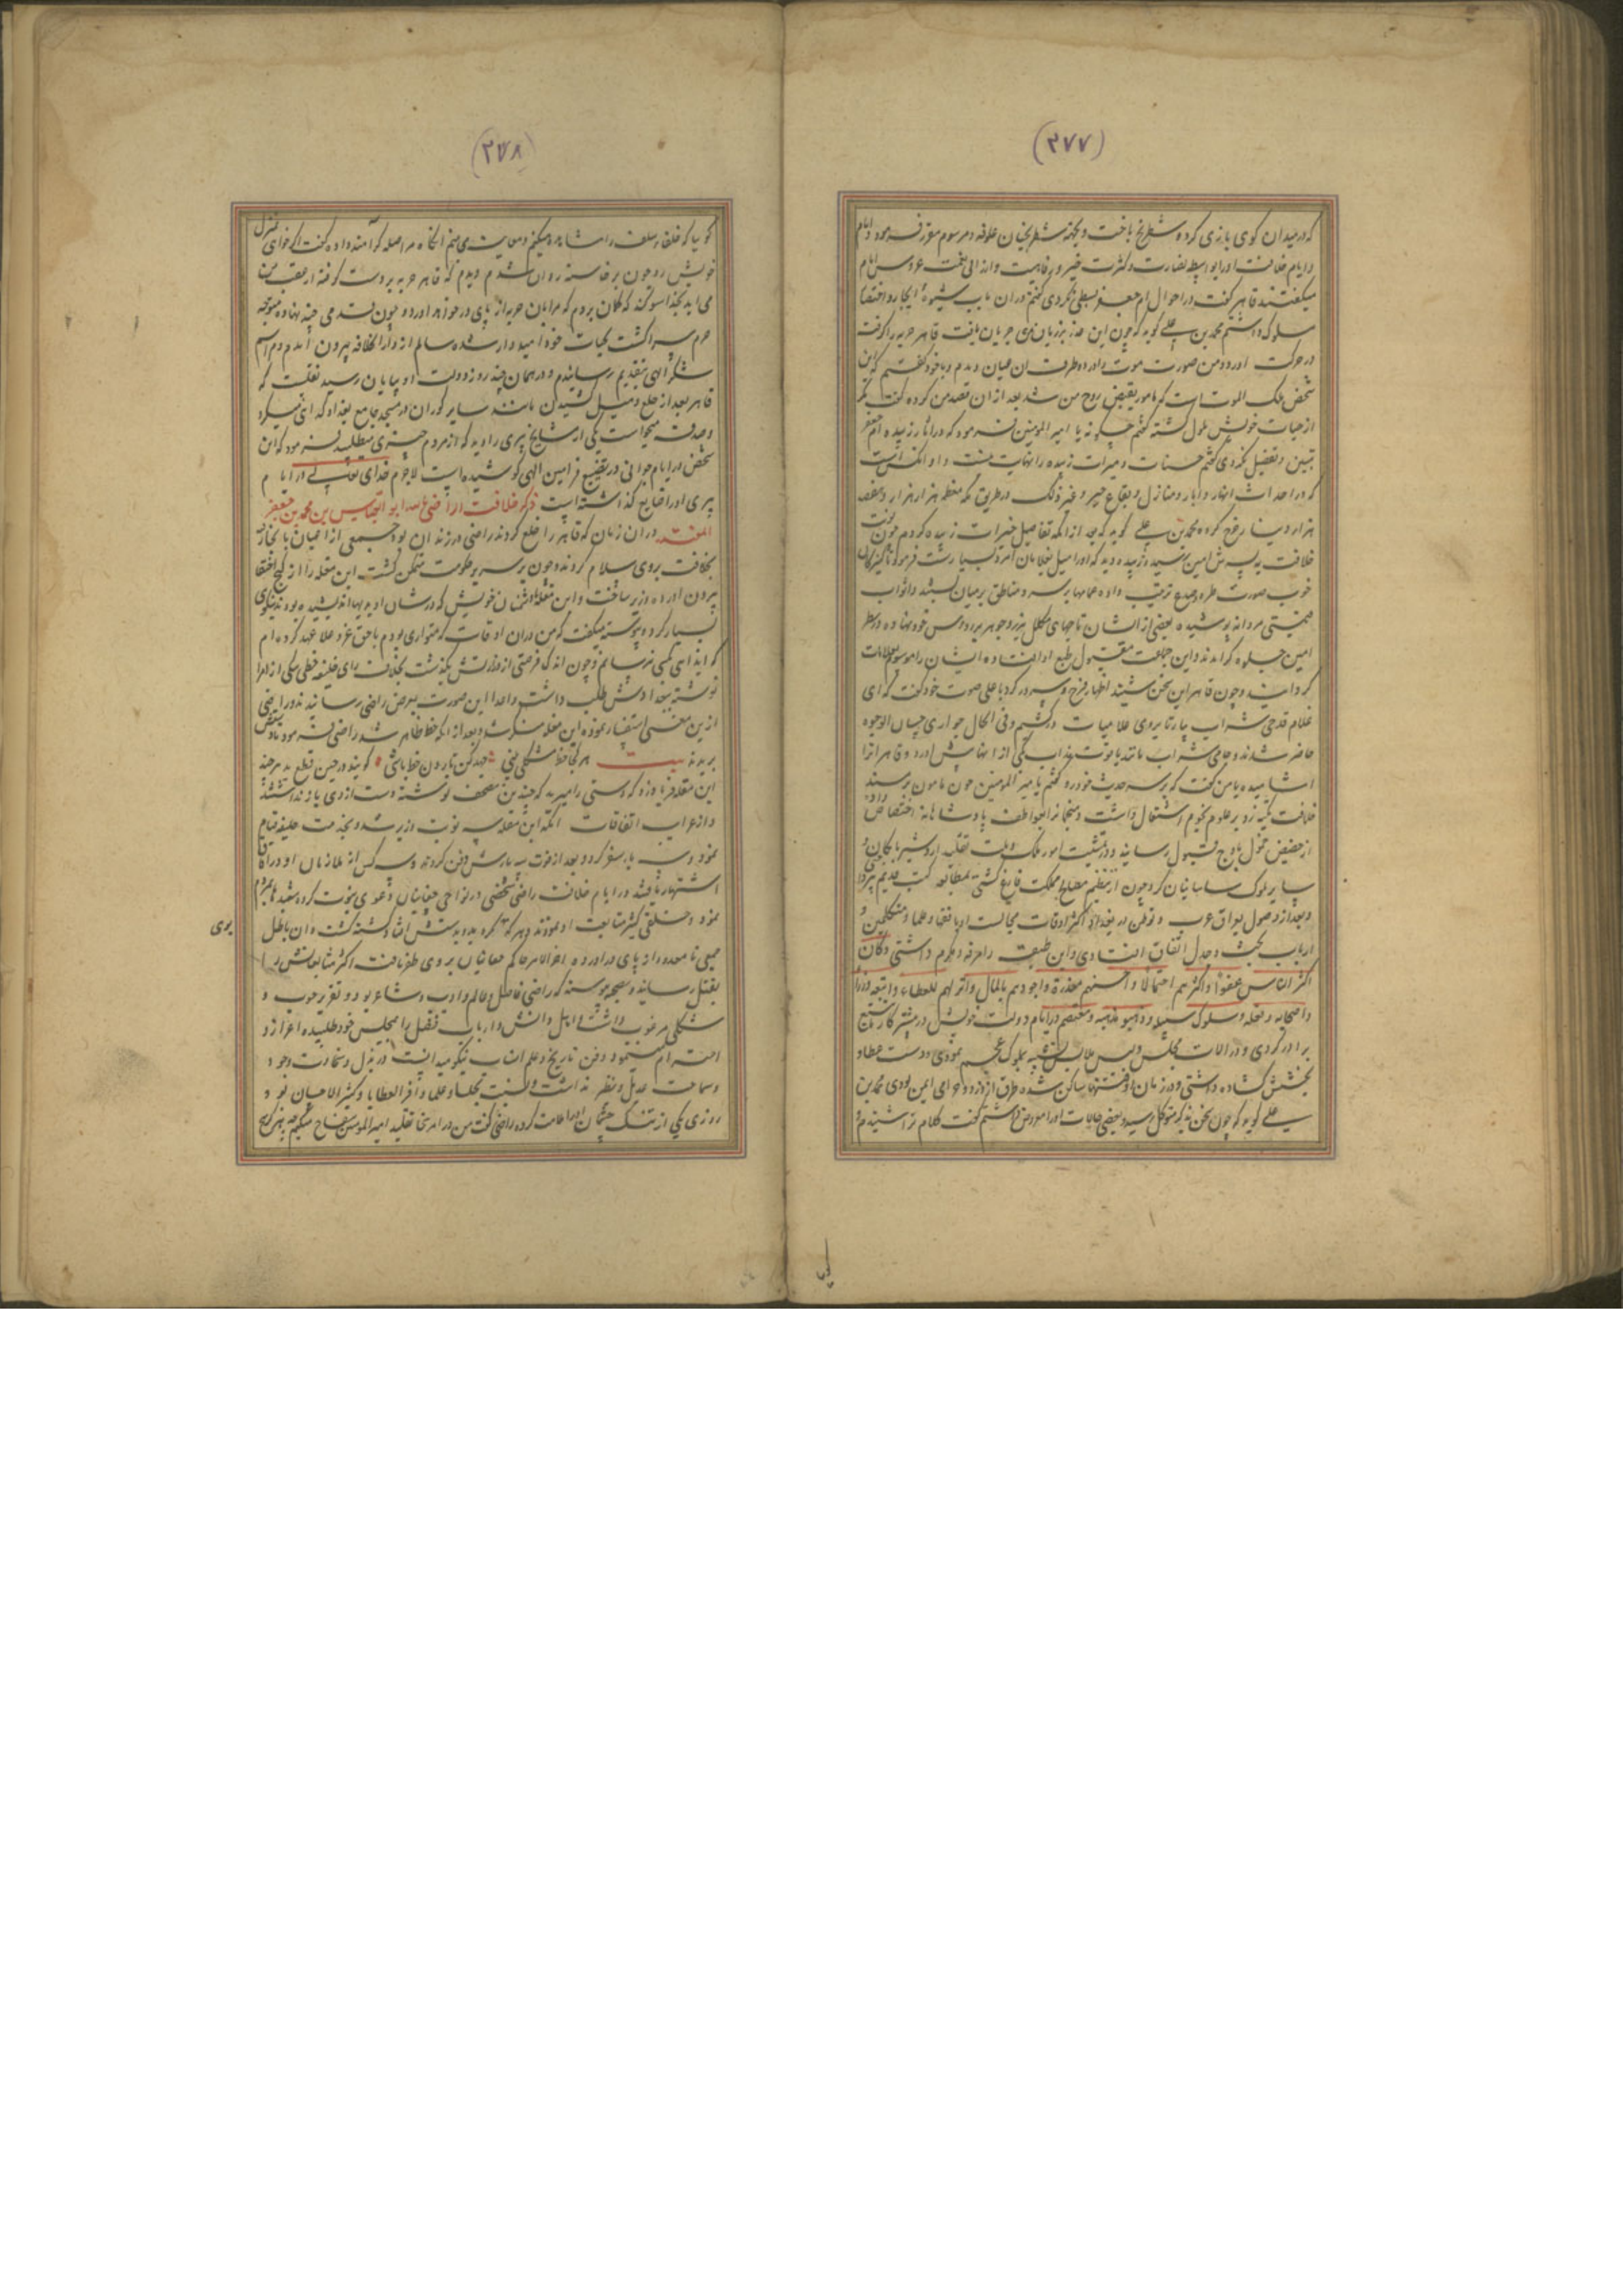 (۲۷۷)
که در میدان کوی بازی کرده شطرنج باخت و بجهة شطرنجیان علوفه و مرسوم مقرر فرمود و ایام
و ایام خلافت او را بواسطه نضارت و کثرت خیر و رفاهیت عروس ایام
میکفتند قاهر کفت در احوال ام جعفر بسطی نکردی کفتم در ان باب شیوه ایجاز و اختصار
مسلوک داشتم محمد بن علی کوید که چون این عذر بر زبان من جریان یافت قاهر حربه را کرفت
در حرکت اورد و من صورت موت را در اطرف ان عیان دیدم و با خود کفتم که این
شخص ملک الموت است که مامور بقبض روح من شد بعد از ان قصد من کرده کفت مکر
از حیات خویش ملول کشته کفتم چکونه یا امیر المومنین فرمود که در اثار زبیده ام جعفر
تبیین و تفصیل نکردی کفتم حسنات و مبرات زبیده را نهایت نیست و او انکس است
که در احداث انهار و ابار و منازل و بقاع خیر و غیر ذلک در طریق مکه معظمه هزار هزار و هفصد
هزار دینار خرج کرده محمد بن علی کوید که بعد از انکه تفاصیل خیرات زبیده کردم چون نوبت
خلافت به پسرش امین رسید و زبیده دید که او را میل بغلامان امرد بسیار است فرمود تا کنیزکان
خوب صورت طره و جامع ترتیب داده عمامها بر سر و مناطق بر میان بستند و اثواب
قیمتی مردانه پوشیده بعضی از ایشان تاجهای مکلل بزر و جوهر بر روس خود نهاده در نظر
امین جلوه کر امدند و این جماعت مقبول طبع او افتاده ایشان را موسوم بغلامات
کردانید و چون قاهر این سخن شنید اظهار فرح و سرور کرد باعلی صوت خود کفت که ای
غلام قدحی شراب بیار تا بروی غلامیات درکشیم و فی الحال جواری حسان الوجوه
حاضر شدند و جامی شراب مانند یاقوت مذاب یکی از انها پیش اورد و قاهر انرا
اشامیده با من کفت که بر سر حدیث خود رو کفتم یا امیر المومنین چون مامون بر مسند
خلافت تکیه زد بر علوم نجوم اشتغال داشت و منجمانرا بعواطف پادشاهانه اختصاص داده
از حضیض خمول باوج قبول رسانید و در تمشیت امور ملک و ملت تقلید اردشیر بابکان و
سایر ملوک ساسانیان کرد چون از تنظیم مصالح مملکت فارغ کشتی بمطالعه کتب قدیم
و بعد از وصول بعراق عرب و توطن در بغداد اکثر اوقات مجالست او با فقها و علما و متکلمین و
ارباب بحث و جدل اتفاق افتادی و این طبقات را معزز و مکرم داشتی و کان
اکثر الناس عفوا و اکثرهم احتمالا و احسنهم مقدرة و اجودهم بالمال و اثرهم للعطاء و اتبعه وزراؤه
و اصحابه و سلوک سبیله و ذهبوا مذهبه و معتصم در ایام دولت خویش در بیشتر کار تتبع
برادر کردی و در الات مجلس و لبس ملابس تشبیه بملوک عجم نمودی و دست عطا و
بخشش کشاده داشتی و در زمان او فتنها ساکن شده طرق از دزد و حرامی ایمن بودی محمد بن
علی کوید که چون سخن بذکر متوکل رسید و بعضی حالات او را معروض داشتم کفت کلام ترا شنیدم و
(۲۷۸)
کویا که خلفاء سلف را مشاهده میکنم و معاینه می بینم انکاه مرا صله کرامند داده کفت اکر خواهی بمنزل
خویش رو چون برخاسته روان شدم دیدم که قاهر حربه بر دست کرفته از عقب من
می اید بخدا سوکند که کمان بردم که مرا بان حربه از پای در خواهد اورد و چون قدمی چند نهاده متوجه
حرم سرا کشت بحیات خود امیدوار شده سالم از دار الخلافه بیرون امدم و مراسم
شکر الهی بتقدیم رسانیدم و در همان چند روز دولت او بپایان رسید نقلست که
قاهر بعد از خلع و میل کشیدن مانند سایر کوران در مسجد جامع بغداد کدائی میکرد
و صدقه میخواست یکی از مشایخ پیری را دید که از مردم چیزی میطلبید فرمود که این
شخص در ایام جوانی در تضییع فرامین الهی کوشیده است لاجرم خدای تعالی در ایام
پیری او را ضایع کذاشته است ذکر خلافت الراضی بالله ابو العباس بن محمد بن جعفر
المقتدر در ان زمان که قاهر را خلع کردند راضی در زندان بود جمعی از اعیان با کار
بخلافت بروی سلام کردند و چون بر سریر حکومت متمکن کشت ابن مقله را از کنج اختفا
بیرون اورده وزیر ساخت و ابن مقله با دشمنان خویش که در شان او بدیها اندیشیده بودند نیکوئی
بسیار کرد و پیوسته میکفت که من در ان اوقات که متواری بودم با حق عز و علا عهد کرده ام
که ایذائی بکسی نرسانم و چون اندک فرصتی از وزارتش بکذشت بخلاف رای خلیفه خطی بیکی از امرا
نوشته ببغدادش طلب داشت و اعدا این صورت بعرض راضی رسانیدند و راضی
ازین معنی استفسار نموده ابن مقله منکر شد و بعد از انکه خط ظاهر شد راضی فرمود تا دستش
بریدند بیت هر کجا خط مشکلی بینی جهد کن تا برون خط باشی کویند در حین قطع ید هر چند
ابن مقله فریاد زد که دستی را میبرید که چندین مصحف نوشته دست از وی باز نداشتند
و از غرایب اتفاقات انکه ابن مقله سه نوبت وزیر شد و بخدمت سه خلیفه قیام
نمود و سه بار سفر کرد و بعد از فوت سه بارش دفن کردند و سه کس از ملازمان او در افاق
اشتهار یافتند و در ایام خلافت راضی شخصی در نواحی چغانیان دعوی نبوت کرده شعبدها بمردم
نمود و خلقی کثیر متابعت او نمودند و هر که نکرود بدستش افتاد کشته کشت و ان باطل
جمعی نامعدود از پای در اورده اخر الامر حاکم چغانیان بر وی ظفر یافت اکثر متابعانش را
بقتل رسانید و بصحت پیوسته که راضی فاضل و عالم و ادیب و شاعر بود و تقریر خوب و
شکلی مرغوب داشت و اهل دانش و ارباب فضل را بمجلس خود طلبیده اعزاز و
احترام مینمود و فن تاریخ و علم انساب نیکو میدانست و در بذل و سخاوت و جود و
و سماحت عدیل و نظیر نداشت و بنسبت بجلسا و علما وافر العطایا و کثیر الاحسان بود و
روزی یکی از تنک چشمان او را ملامت کرده راضی کفت من در امر سخا تقلید امیر المومنین سفاح میکنم چه